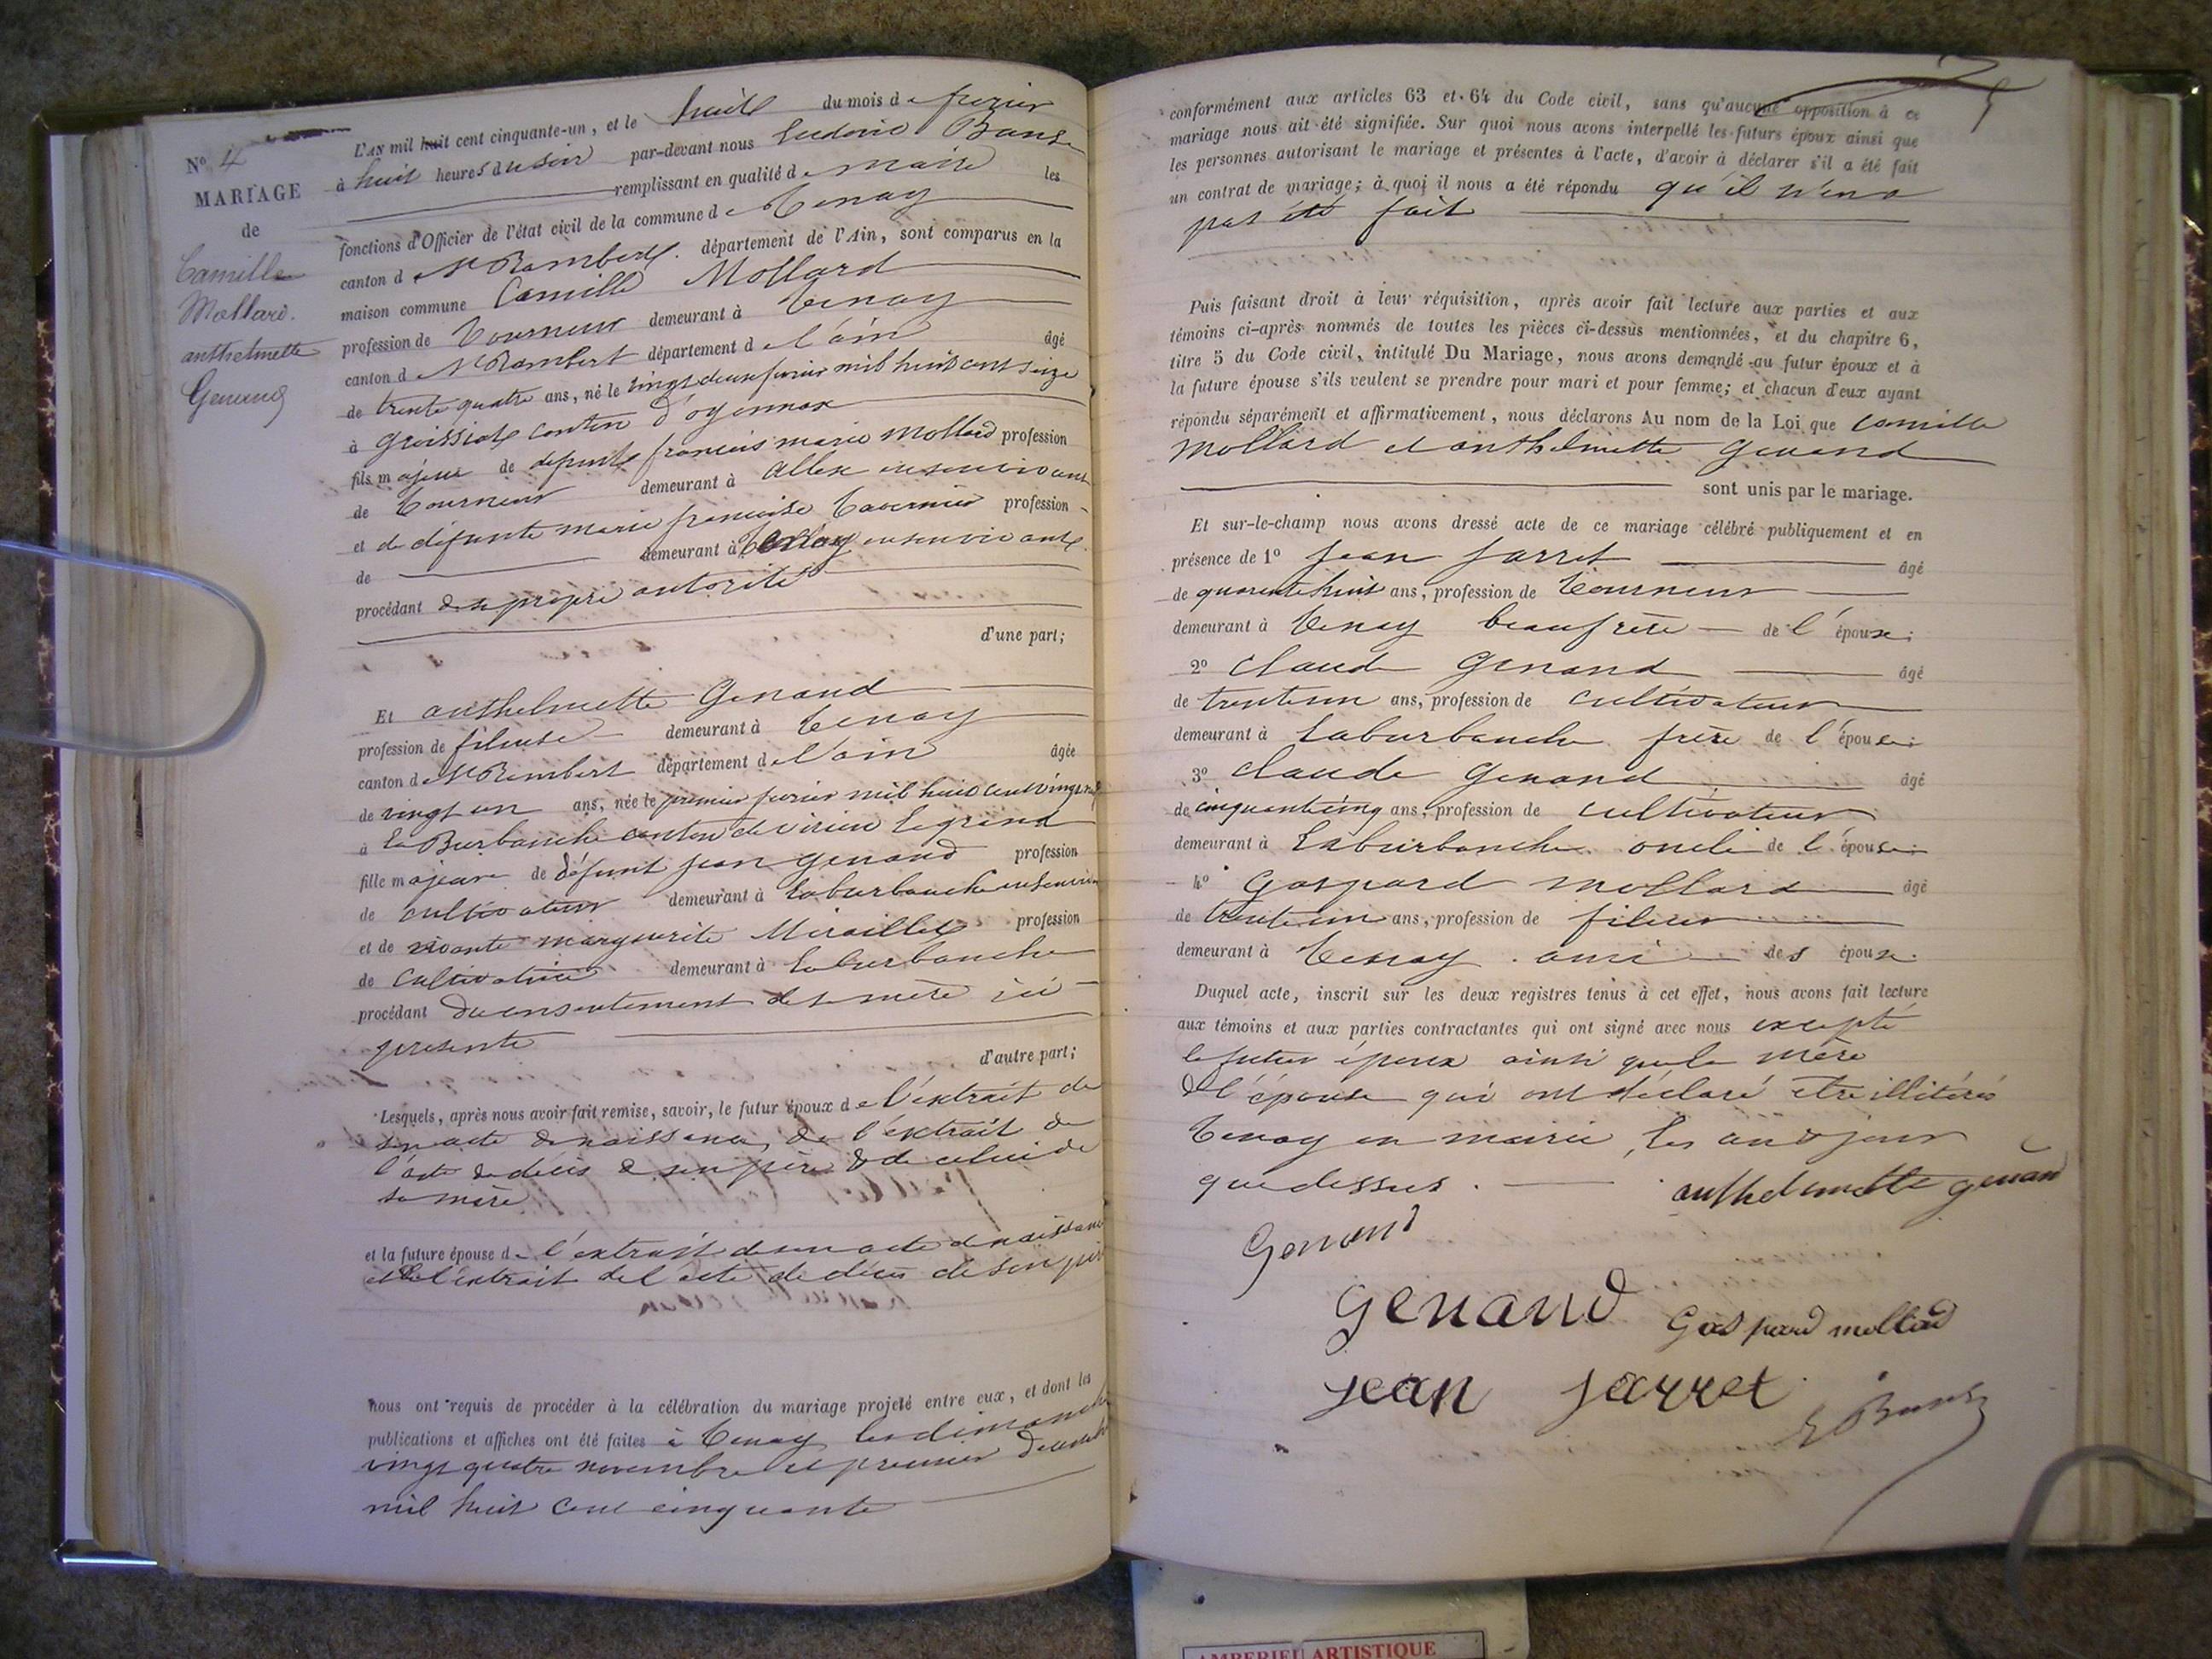 L'AN mil huit cent cinquante-un, et le huit du mois de fevrier
à huit heures du soir par-devant nous Ludovic
remplissant en qualité de maire les
fonctions d'Officier de l'état civil de la commune de Tenay
canton de St Rambert département de l'Ain, sont comparus en la
maison commune Camille Mollard
profession de Tourneur demeurant à Tenay
canton de St Rambert département de l'ain âgé
de trente quatre ans, né le vingt deux fevrier mil huit cent seize
à groissiat canton d'oyonnax
fils majeur de defunt françois marie Mollard profession
de Tourneur demeurant à allex en son vivant
et de défunte marie françoise Tavernier profession
de demeurant à Tenay en son vivant
procédant de sa propre autorité
d'une part;
Et anthelmette Genand
profession de fileuse demeurant à Tenay
canton de St Rambert département de l'ain âgée
de vingt un ans, née le premier fevrier mil huit cent vingt
à la Burbanche canton de virieu le grand
fille majeure de défunt jean genand profession
de cultivateur demeurant à Laburbanche en son vivan
et de vivante marguerite Miraillet profession
de cultivatrice demeurant à Laburbanche
procédant du consentement de sa mère ici
presente
d'autre part;
Lesquels, après nous avoir fait remise, savoir, le futur époux de l'extrait de
son acte de naissance, de l'extrait de
l'acte de décès de son père & de celui de
sa mère
et la future épouse de l'extrait de son acte de naissance
et de l'extrait de l'acte de décès de son père
nous ont requis de procéder à la célébration du mariage projeté entre eux, et dont les
publications et affiches ont été faites à Tenay les dimanches
vingt quatre novembre et premier decembre
mil huit cent cinquante
No 4
MARIAGE
de
Camille
Mollard.
anthelmette
Genand
conformément aux articles 63 et 64 du Code civil, sans qu'aucune opposition à ce
mariage nous ait été signifiée. Sur quoi nous avons interpellé les futurs époux ainsi que
les personnes autorisant le mariage et présentes à l'acte, d'avoir à déclarer s'il a été fait
un contrat de mariage; à quoi il nous a été répondu qu'il n'en a
pas été fait
Puis faisant droit à leur réquisition, après avoir fait lecture aux parties et aux
témoins ci-après nommés de toutes les pièces ci-dessus mentionnées, et du chapitre 6,
titre 5 du Code civil, intitulé Du Mariage, nous avons demandé au futur époux et à
la future épouse s'ils veulent se prendre pour mari et pour femme; et chacun d'eux ayant
répondu séparément et affirmativement, nous déclarons Au nom de la Loi que Camille
Mollard et anthelmette genand
sont unis par le mariage.
Et sur-le-champ nous avons dressé acte de ce mariage célébré publiquement et en
présence de 1º Jean Jarret âgé
de quarante huit ans, profession de Tourneur
demeurant à Tenay beaufrère de l'épouse;
2º Claude Genand âgé
de trente un ans, profession de cultivateur
demeurant à Laburbanche frère de l'épouse;
3º Claude Genand âgé
de cinquante cinq ans, profession de cultivateur
demeurant à Laburbanche oncle de l'épouse;
4º Gaspard mollard âgé
de trente un ans, profession de fileur
demeurant à Tenay ami des époux.
Duquel acte, inscrit sur les deux registres tenus à cet effet, nous avons fait lecture
aux témoins et aux parties contractantes qui ont signé avec nous excepté
le futur époux ainsi que la mère
de l'épouse qui ont déclaré être illitérés
Tenay en mairie, les an & jour
que dessus. anthelmette genan
Genand
Genand Gaspard mollard
jean jarret
AMBERIEU ARTISTIQUE